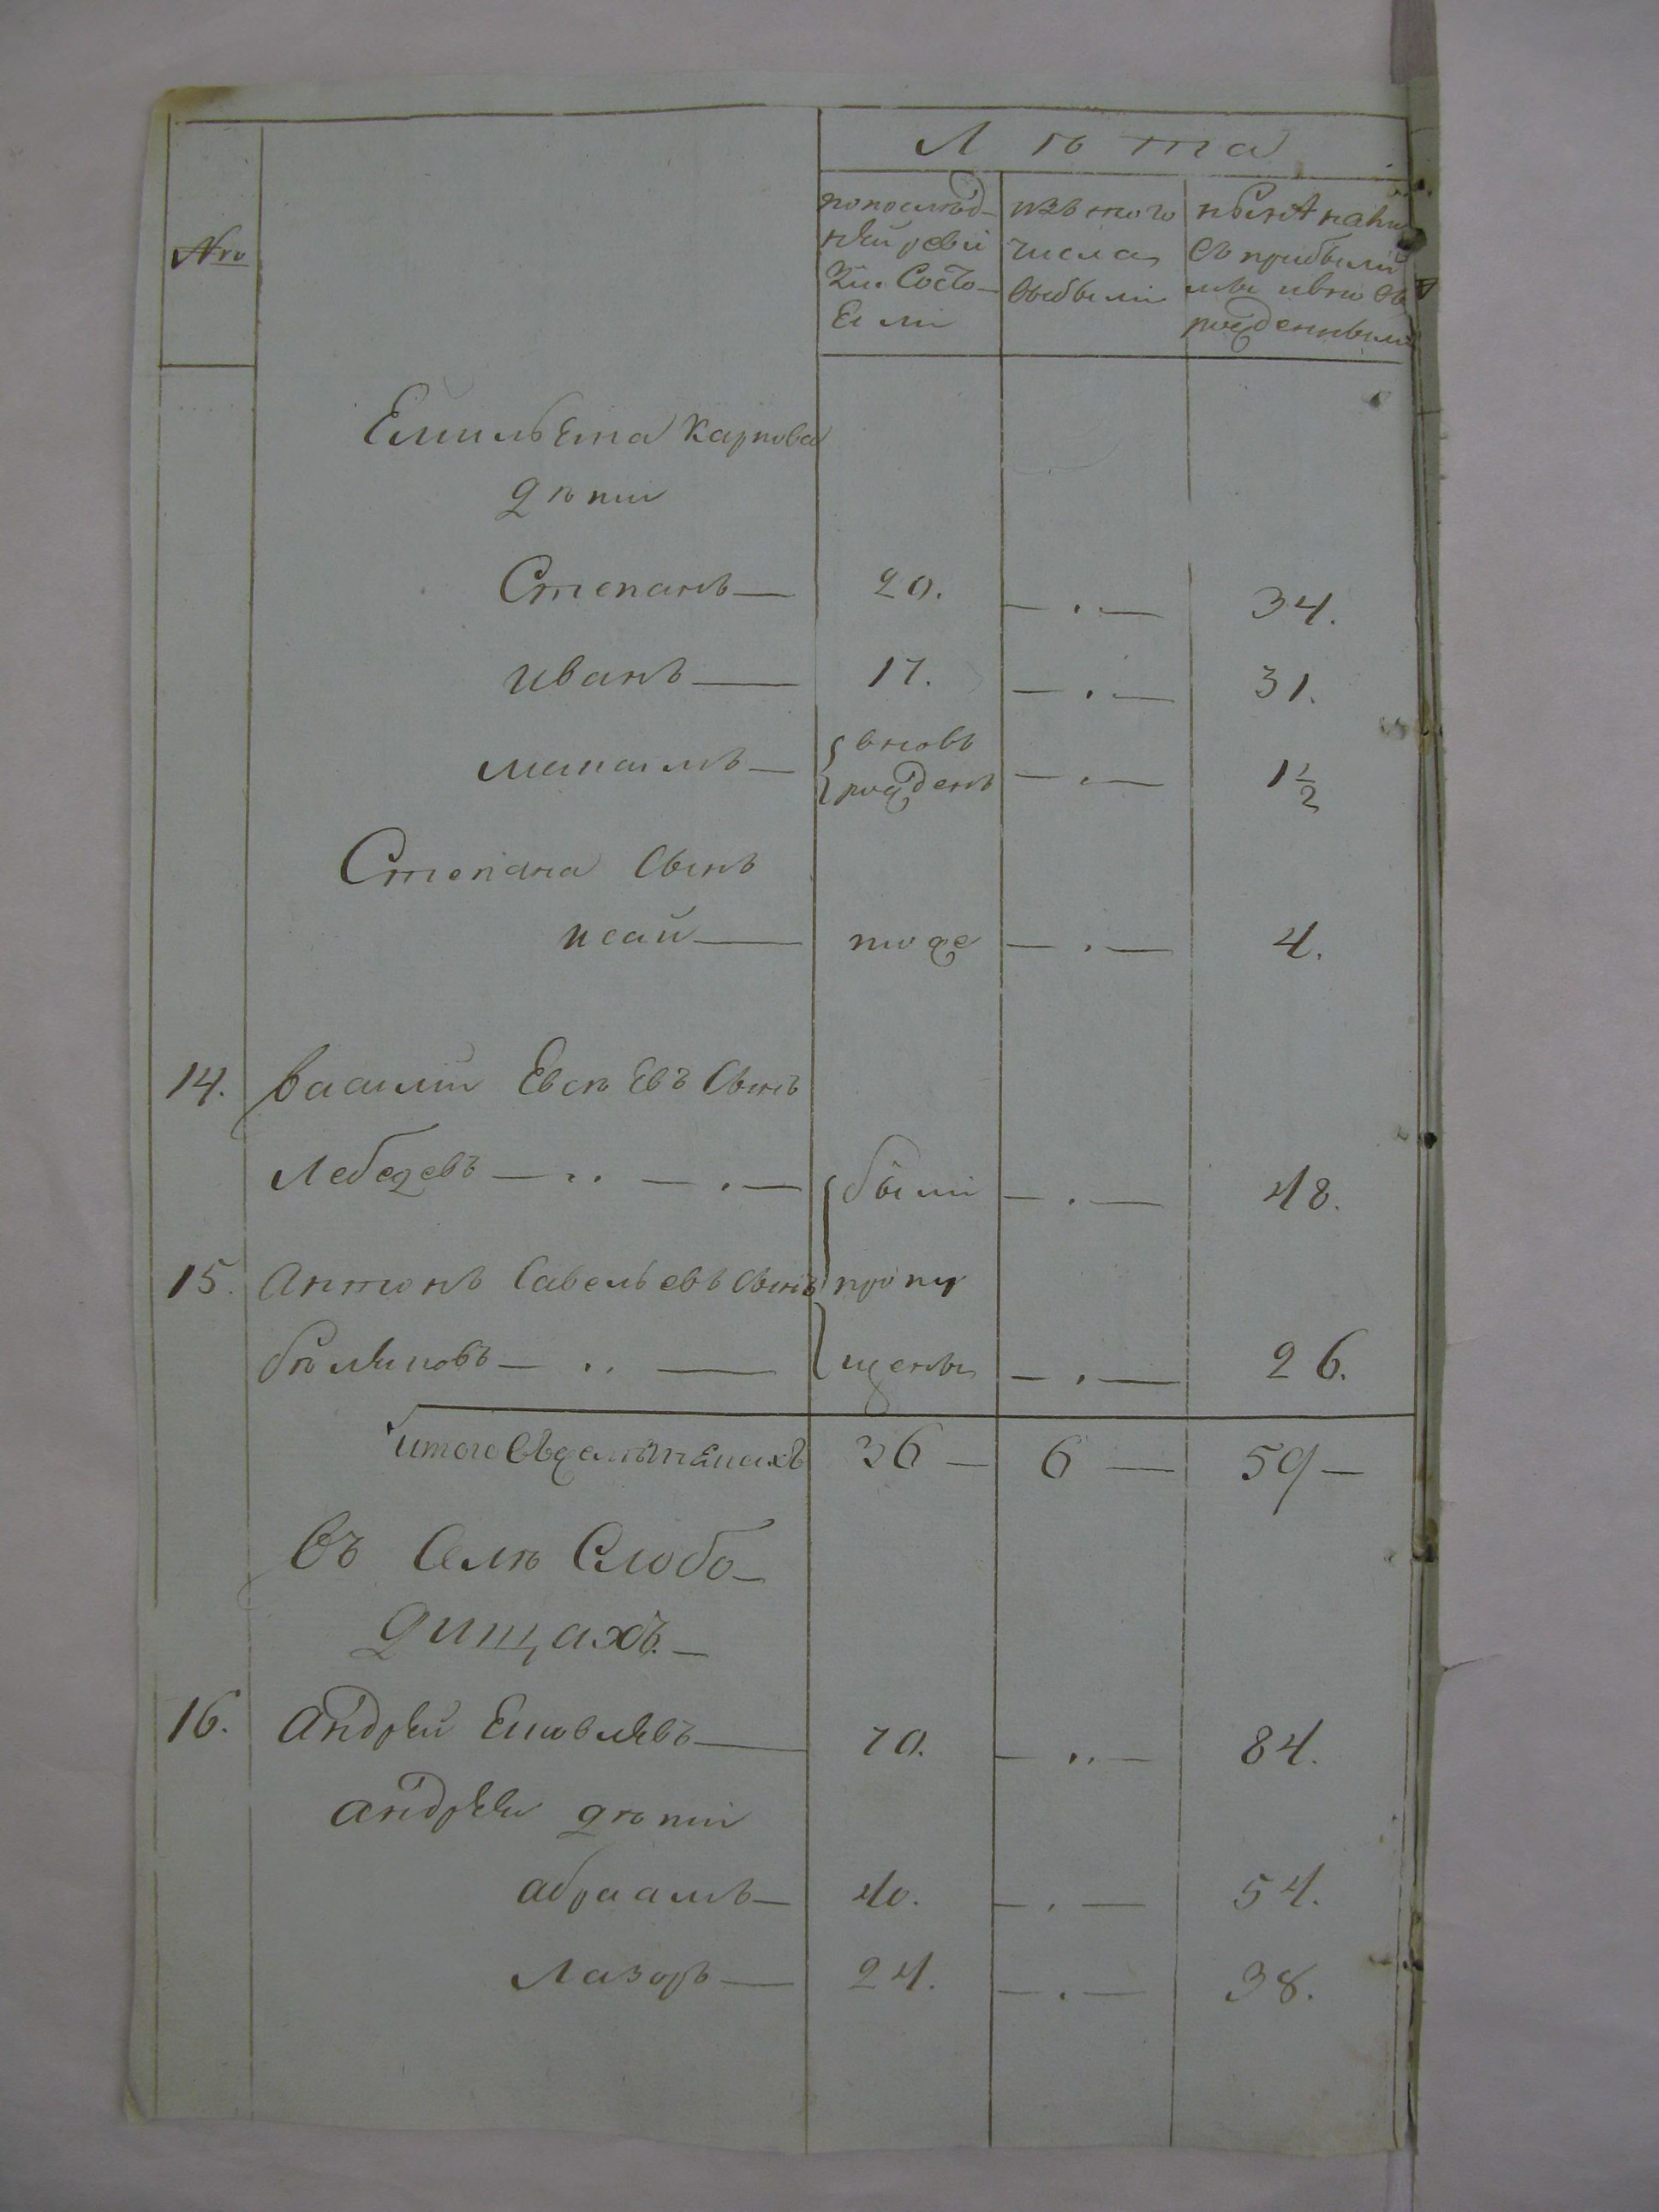 Лѣта
Nro
по послѣд-
ней реви
зіи Состо-
Ели
изъ того
числа
выбыли
нынѣ на ли
съ прибылы
ми и вновь
рожденными
Емильена карпова
дѣти
Степанъ — 20. — . — 34.
иванъ — 17. — . — 31.
вновь
рожденъ — . — 1½
Степана Сынъ
исаи — тоже — . — 4.
14. василій Евсѣевъ Сынъ
Лебедевъ — .. — . — были — . — 48.
15. Антонъ Савельевъ Сынъ пропу
— .. — щены — . — 26.
итого 36 — 6 — 59 —
въ Селѣ Слобо-
дищахъ. —
16. Андрей — 70. — .. — 84.
Андрея дѣти
абраамъ — 40. — . — 54.
Лазорь — 24. — . — 38.